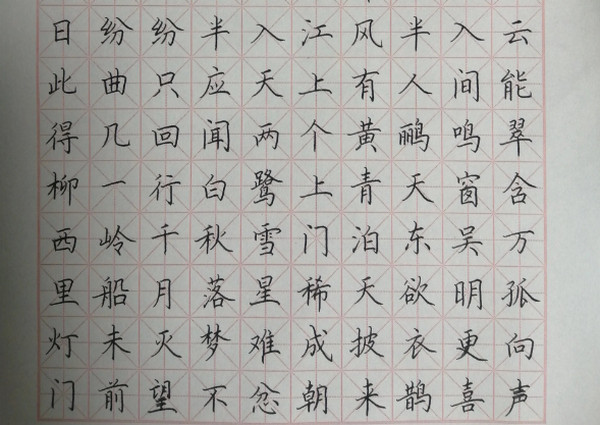 日纷纷半入江风半入云
此曲只应天上有人间能
得几回闻两个黄鹂鸣翠
柳一行白鹭上青天窗含
西岭千秋雪门泊东吴万
里船月落星稀天欲明孤
灯未灭梦难成披衣更向
门前望不忿朝来鹊喜声